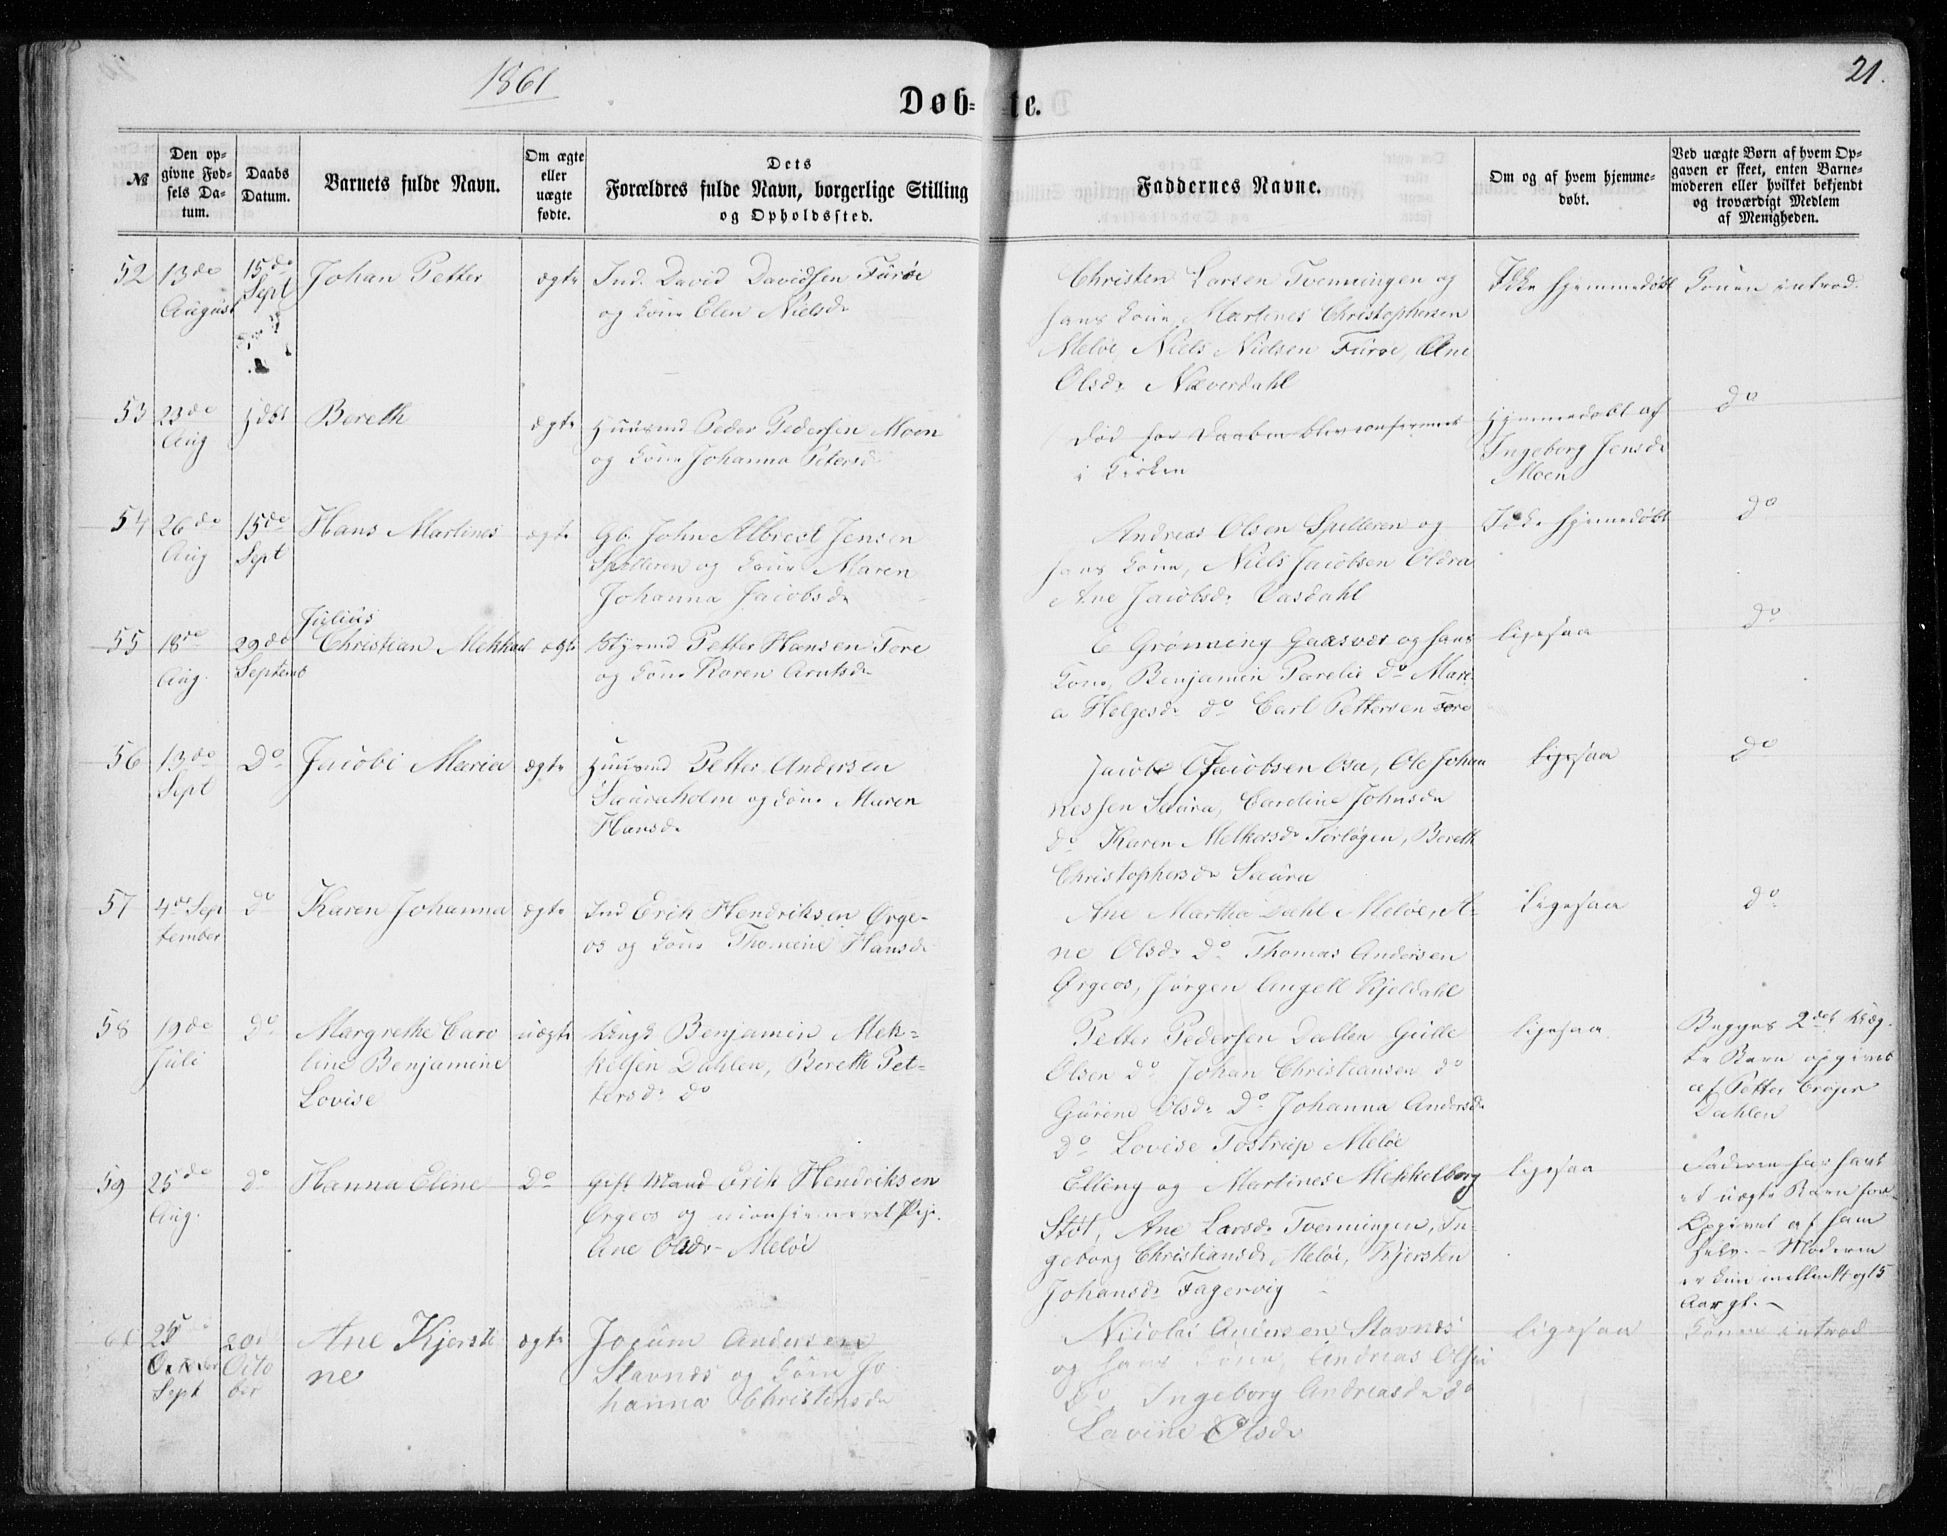 1861
21.
Døb-te.
№
Den opgivne Fødsels Datum.
Daabs Datum.
Barnets fulde Navn.
Om ægte eller uægte fødte.
Dets Forældres fulde Navn, borgerlige Stilling og Opholdssted.
Faddernes Navne.
Om og af hvem hjemmedøbt.
Ved uægte Børn af hvem Opgaven er skeet, enten Barnemoderen eller hvilket bekjendt og troværdigt Medlem af Menigheden.
52
13de August
15de Sept
Johan Petter
ægte
Ind. David Davidsen Furøe
og Kone Elen Nielsdr
Christen Larsen Tvenningen og
hans Kone, Martines Christophersen
Meløe, Niels Nielsen Furøe, Ane
Olsdr Næverdahl
Ikke hjemmedøbt
Konen introd.
53
23de Aug
Hdbt
Bereth
ægte
Huusmd Peder Pedersen Moen
og Kone Johanna Petersd
Død før Daaben blev confirmeret
i Kirken
Hjemmedøbt af
Ingeborg Jensdr
Moen
do
54
26de Aug
15de Sept
Hans Martines
ægte
Gb. John Albrect Jensen
Spilleren og Kone Maren
Johanna Jacobsdr
Andreas Olsen Spilleren og
hans Kone, Niels Jacobsen Oldra
Ane Jacobsdr Vasdahl
Ikke hjemmedøbt
do
55
18de Aug.
29de Septemb
Julius
Christian Mekkel
ægte
Styrmd Petter Hansen Tore
og Kone Karen Arntsdr
E Grønning Gaasvær og hans
Kone, Benjamin Parelie do Mari-
a Helgesdr do Carl Pettersen Tore
ligesaa
do
56
13de Sept
Do
Jacobi Maria
ægte
Huusmd Petter Andersen
Sauraholm og Kone Maren
Hansdr
Jacob Jacobsen Osa, Ole Johan
nessen Saura, Caroline Johnsdr
do Karen Melkersdr Forløgen, Bereth
Christophersdr Saura
ligesaa
do
57
4de Sep
tember
do
Karen Johanna
ægte
Ind Erik Hendriksen Ørge-
os og Kone Thomine Hansdr
Ane Martha Dahl Meløe, A-
ne Olsdr do Thomas Andersen
Ørgeos, Jørgen Angell Kjeldahl
ligesaa
do
58
19de
Juli
do
Margrethe Caro
line Benjamine
Lovise
uægte
Ungk Benjamin Mek-
kelsen Dahlen, Bereth Pet-
tersdr do
Petter Pedersen Dallen Gulle
Olsen do Johan Christiansen do
Gurine Olsdr do Johanna Andersdr
do Lovise Tostrup Meløe
ligesaa
Begges 2det Uæg-
te Barn opgivet
af Petter Crøger
Dahlen
59
25de
Aug.
do
Hanna Eline
Do
Gift Mand Erik Hendriksen
Ørgeos og uconfirmeret Pige
Ane Olsdr Meløe
Elling og Martines Mekkelborg
Støt, Ane Larsdr Tvenningen, In-
geborg Christiansdr Meløe, Kjersten
Johansdr Fagervig
ligesaa
Faderen har havt
et uægte Barn før
Opgivet af ham
selv. - Moderen
er kun mellem 14 og 15
Aar gl. -
25
Sept
20
Octo
ber
Ane Kjersti
ne
ægte
Jocum Andersen
Stavnæs og Kone Jo
hanna Christensdr
Nicolai Andersen Stavnæs
og hans Kone, Andreas Olsen
do Ingeborg Andreasdr do
Lavine Olsdr
ligesaa
Konen introd